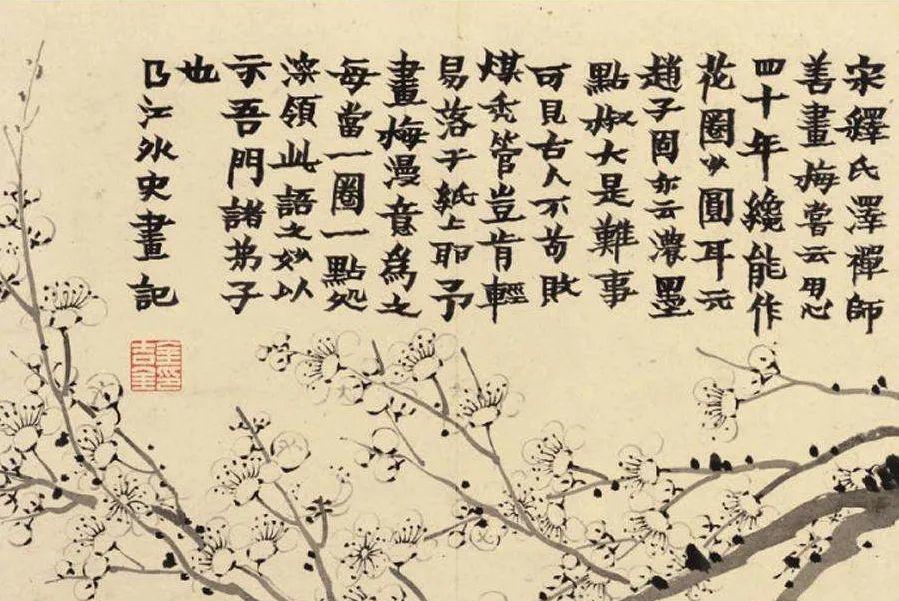 宋釋氏澤禪師
善畫梅嘗云用心
四十年纔能作
花圈少圓耳元
趙子固亦云濃墨
點椒大是難事
可見古人不苟敗
煤禿管豈肯輕
易落于紙上耶予
畫梅漫意為之
每當一圈一點処
深領此語之妙以
示吾門諸弟子
也
曲江外史畫記
金吉金印